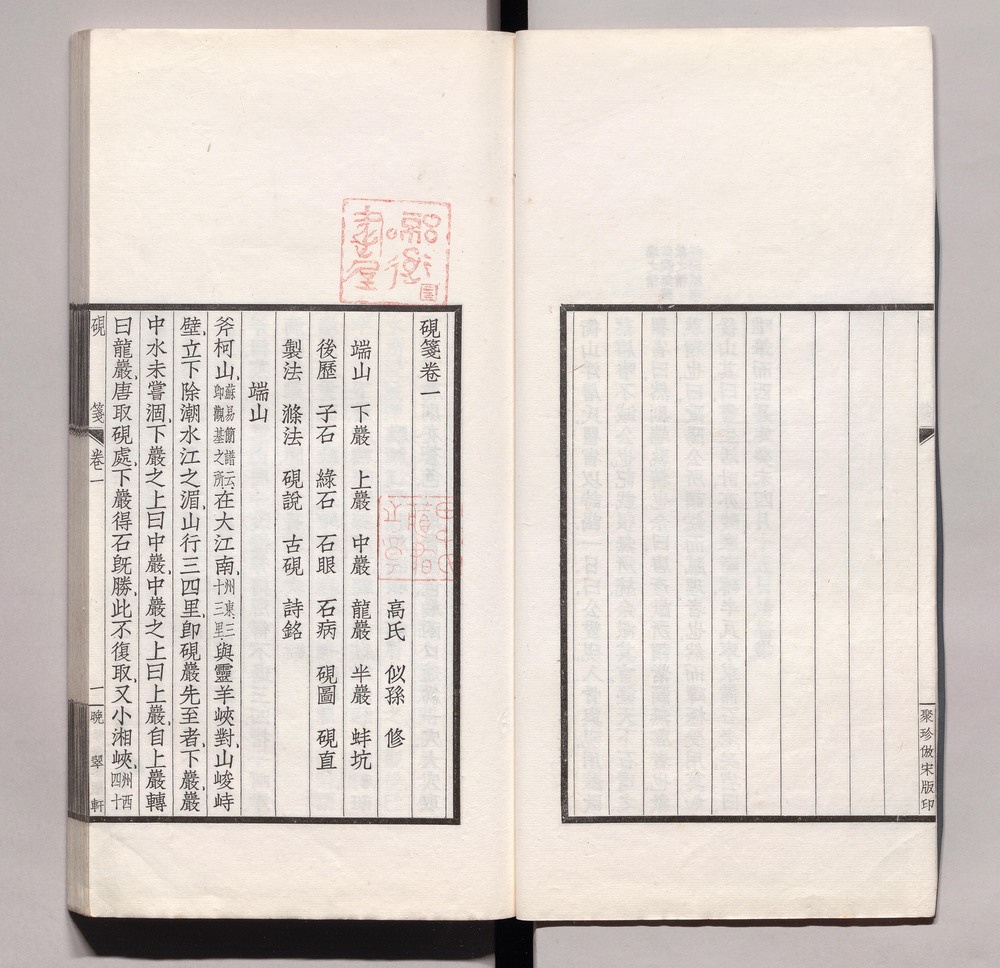 聚珍倣宋版印
硯箋卷一
高氏　似孫　修
端山　下巖　上巖　中巖　龍巖　半巖　蚌坑
後歷　子石　綠石　石眼　石病　硯圖　硯直
製法　滌法　硯說　古硯　詩銘
端山
斧柯山蘇易簡譜云卽觀基之所在大江南州東三十三里與靈羊峽對山峻峙
壁立下除潮水江之湄山行三四里卽硯巖先至者下巖巖
中水未嘗涸下巖之上曰中巖中巖之上曰上巖自上巖轉
曰龍巖唐取硯處下巖得石旣勝此不復取又小湘峽州西四十
硯箋　卷一　一　晩翠軒